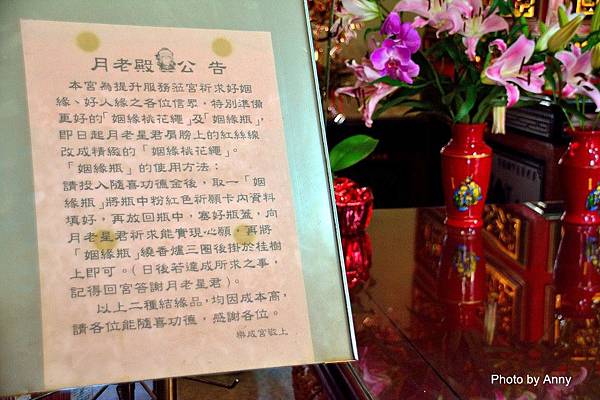 月老殿公告
本宮為提升服務蒞宮祈求好姻
緣、好人緣之各位信眾，特別準備
更好的「姻緣桃花繩」及「姻緣瓶」，
即日起月老星君肩膀上的紅絲線
改成精緻的「姻緣桃花繩」。
「姻緣瓶」的使用方法：
請投入隨喜功德金後，取一「姻
緣瓶」將瓶中粉紅色祈願卡內資料
填好，再放回瓶中，塞好瓶蓋，向
月老星君祈求能實現心願，再將
「姻緣瓶」繞香爐三圈後掛於桂樹
上即可。（日後若達成所求之事，
記得回宮答謝月老星君）。
以上二種結緣品，均因成本高，
請各位能隨喜功德，感謝各位。
樂成宮敬上
Photo by Anny